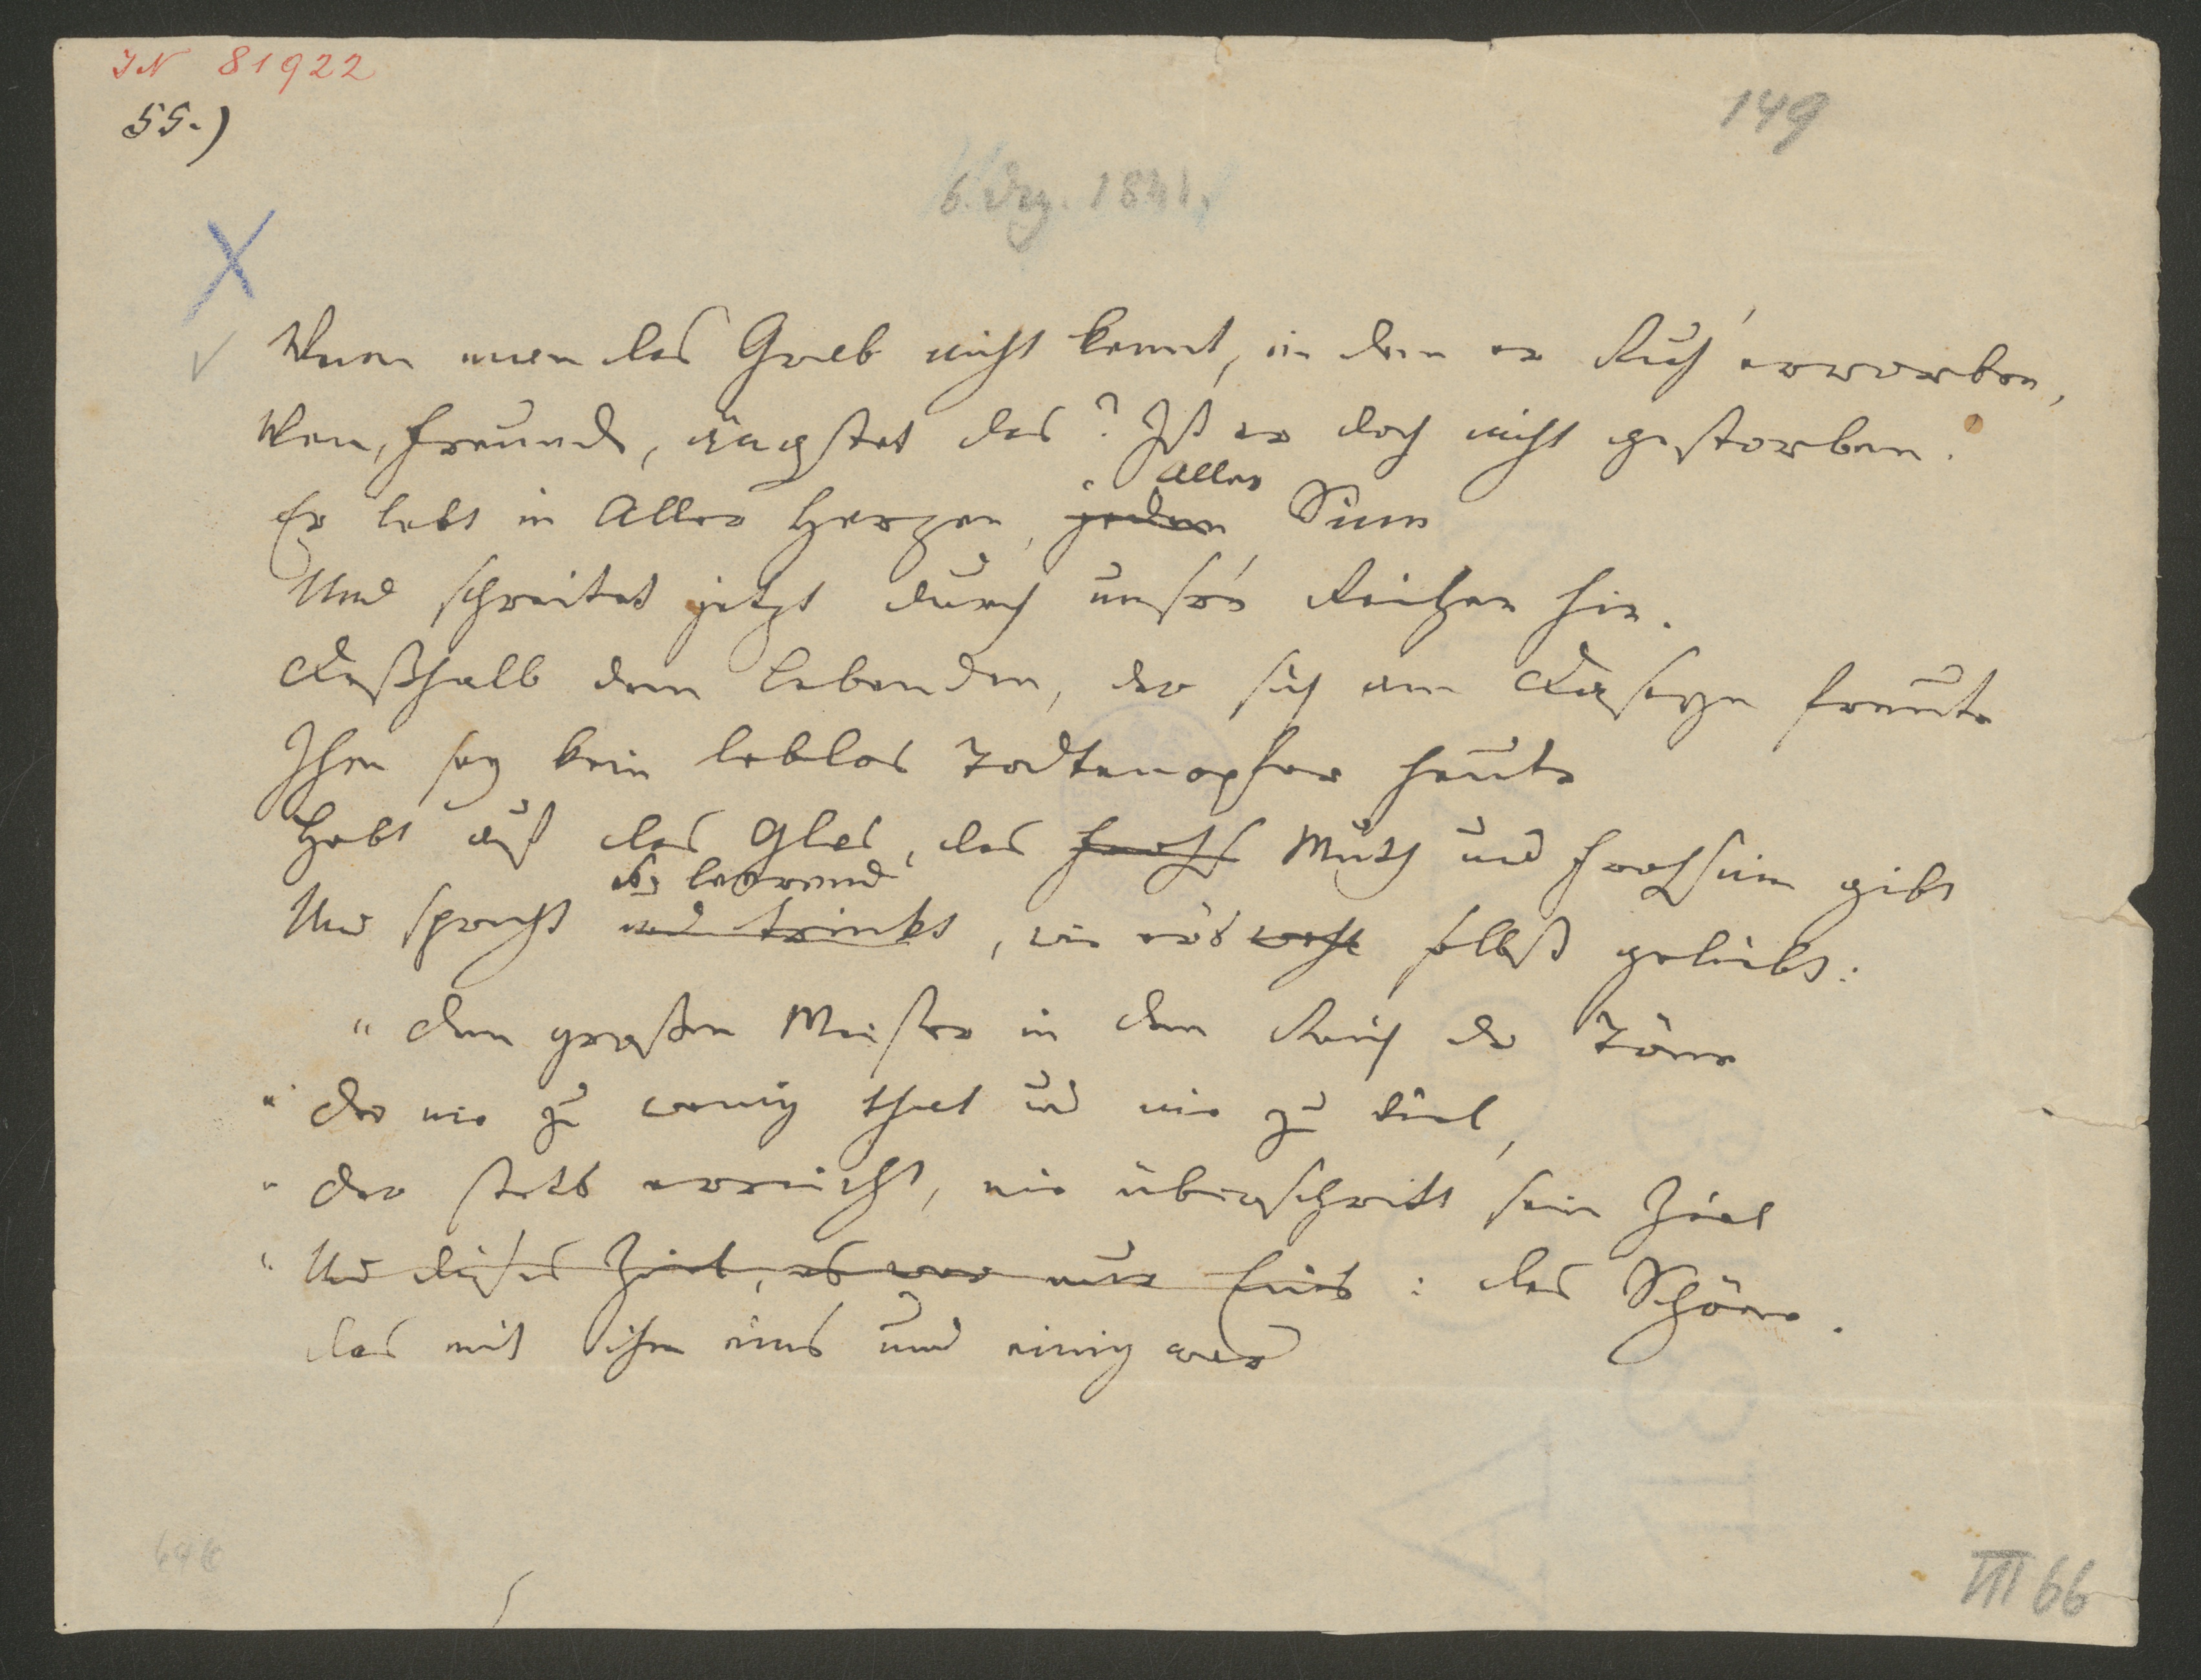 IN 81922
55.)
149
6. Dez. 1841.
Wenn man das Grab nicht kennt, in dem er Ruh' erworben,
Wen, Freunde, ängstet das? Ist er doch nicht gestorben!
Alles
Er lebt in Aller Herzen, jedem Sinn
Und schreitet jetzt durch unsre' Reihen hin.
Deßhalb dem Lebenden, der sich am Daseyn freute
Ihm sey kein leblos Todtenopfer heute
Hebt auf das Glas, das frohs Muth und Frohsinn gibt
leerend
Und sprecht und trinkt, wie er's wohl selbst geliebt:
"Dem großen Meister in dem Reich der Töne
"Der nie zu wenig that und nie zu viel,
"Der stets erreicht, nie überschritt sein Ziel
"Und dieses Ziel, es war nur Eins: das Schöne.
Das mit ihm eins und einig war
III 66